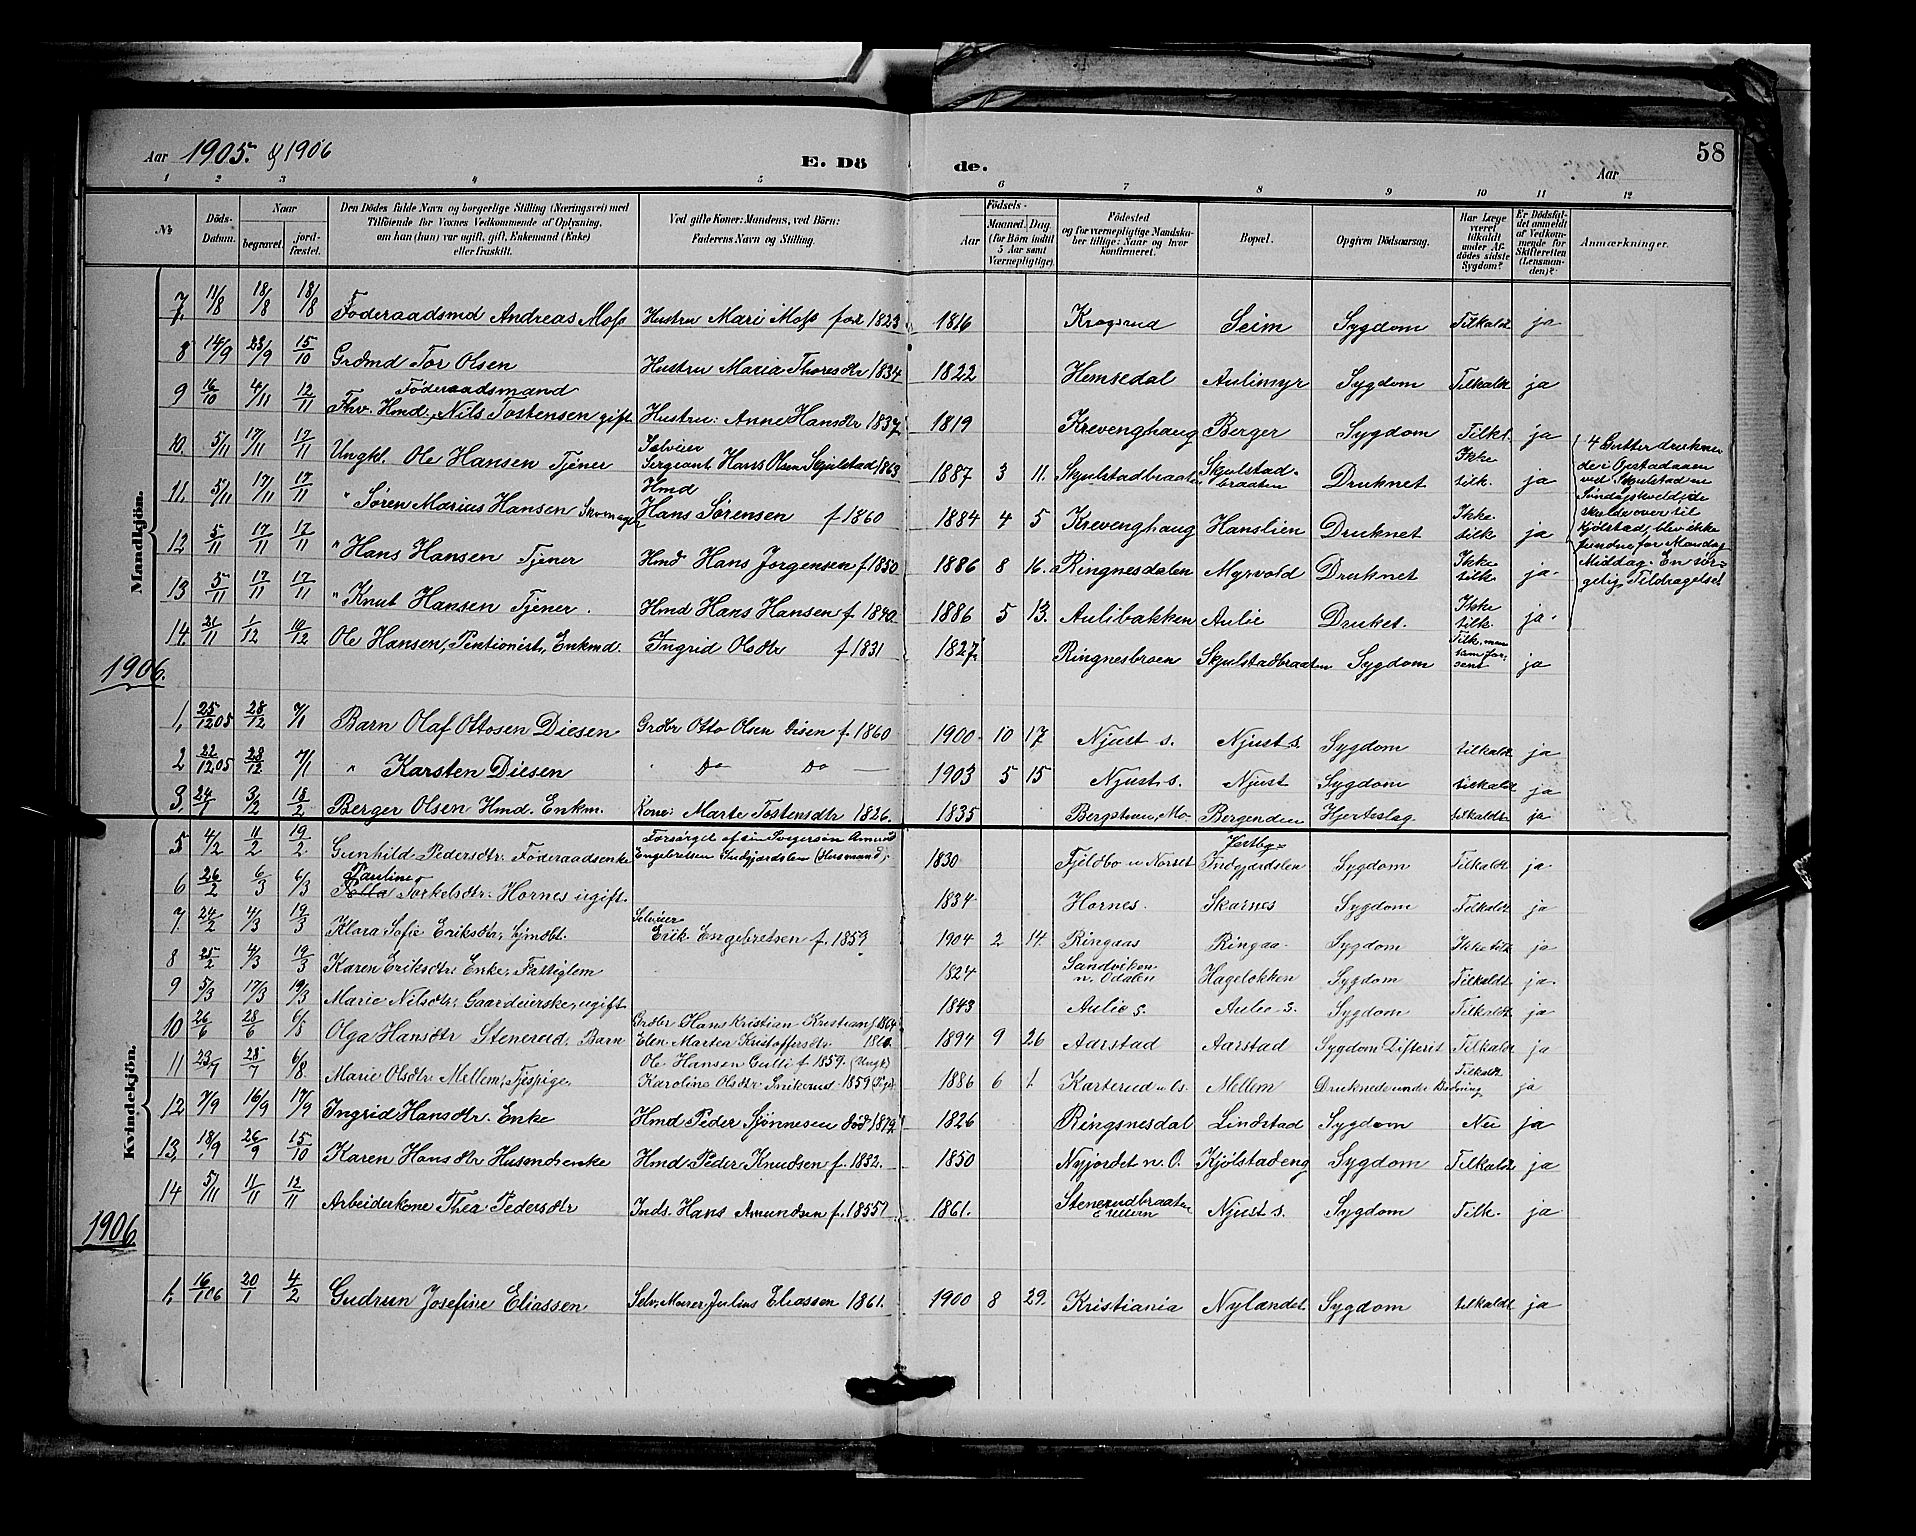 Aar 1905. & 1906
E. Dö de.
58
Aar
1 2 3 4 5 6 7 8 9 10 11 12
№
Döds-Datum.
Naar
begravet.
jordfæstet.
Den Dödes fulde Navn og borgerlige Stilling (Næringsvei) med
Tilföiende for Voxnes Vedkommende af Oplysning,
om han (hun) var ugift, gift, Enkemand (Enke)
eller fraskilt.
Ved gifte Koner: Mandens, ved Börn:
Faderens Navn og Stilling.
Födsels-
Aar
Maaned. Dag.
(for Börn indtil
5 Aar samt
Værnepligtige).
Födested
og for værnepligtige Mandskaber tillige: Naar og hvor
konfirmeret.
Bopæl.
Opgiven Dödsaarsag.
Har Læge
været
tilkaldt
under Afdödes sidste
Sygdom?
Er Dödsfaldet anmeldt
af Vedkommende for
Skifteretten
(Lensmanden)?
Anmærkninger.
Mandkjön.
7, 11/8 18/8 18/8 Föderaadsmd Andreas Moss Hustru Mari Moss föd 1823 1816 Krogsrud Seim Sygdom Tilkaldt ja
8 14/9 28/9 15/10 Grdmd Tor Olsen Hustru Maria Thoresdtr 1834 1822 Hemsedal Aulimyr Sygdom Tilkaldt ja
9 16/10 4/11 12/11 Föderaadsmand
Fhv. Hmd. Nils Tostensen gift Hustru: Anne Hansdtr 1837 1819 Krevenghaug Berger Sygdom Tilk. ja
10. 5/11 17/11 17/11 Ungkl. Ole Hansen Tjener Selveier
Sergeant Hans Olsen Skjulstad 1863 1887 3 11. Skjulstadbraaten Skjulstadbraaten Druknet Ikke tilk. ja
11. 5/11 17/11 17/11 " Sören Marius Hansen Skomager Hmd
Hans Sörensen f 1860 1884 4 5 Krevenghaug Hanslien Druknet Ikke tilk ja
12 5/11 17/11 17/11 " Hans Hansen Tjener Hmd Hans Jörgensen f 1850 1886 8 16. Ringnesdalen Myrvold Druknet Ikke tilk ja.
13 5/11 17/11 17/11 " Knut Hansen Tjener. Hmd Hans Hansen f. 1840. 1886 5 13. Aulibakken Aulie Druket. Ikke tilk. ja.
{ 4 Gutter druknede i Opstadaaen
ved Skjulstad en
Söndagskveld, de
skulde over til
Kjölstad, blev ikke
fundne för Mandag
Middag. En sörgelig Tildragelse!
14. 21/11 1/12 10/12 Ole Hansen, Pentionist, Enkmd. Ingrid Olsdtr f 1831 1827 Ringnesbroen Skjulstadbraaten Sygdom Tilk. men kom for sent ja
1906.
1, 25/12 05 28/12 7/1 Barn Olaf Ottosen Diesen Grdbr Otto Olsen Disen f. 1860 1900 10 17 Njust s. Njust s. Sygdom tilkaldt ja
2 22/12 05 28/12 7/1 " Karsten Diesen " Do Do — 1903 5 15 Njust s. Njust Sygdom tilkaldt ja
3, 24/1 3/2 18/2 Berger Olsen Hmd. Enkm. Kone: Marte Tostensdtr 1826. 1835 Bergstuen, Mo Bergenden Hjerteslag tilkaldt ja
Kvindekjön.
5 4/2 11/2 19/2 Gunhild Pedersdtr. Föderaadsenke Forsörget af sin Svigersön Amund
Engebretsen Indgjærdslen (Husmand). 1830 Fjeldbo u Norset Indgjærdslen Sygdom Tilkaldt ja
6 26/2 6/3 6/3 Pauline
Torkelsdtr. Hornes ugift. 1834 Hornes. Skarnes Sygdom Tilkaldt ja
7. 24/2 4/3 19/3 Klara Sofie Eriksdtr. Selveier
Erik Engebretsen f. 1859 1904 2 14. Ringaas Ringaa Sygdom Ikke tilk ja
8 25/2 4/3 19/3 Karen Eriksdtr. Enke, Fattiglem 1824 Sandviken n. Odalen Hagelökken Sygdom Tilkaldt ja
9 5/3 17/3 19/3 Marie Nilsdtr. Gaardeierske, ugift 1843 Aulie s. Aulie s. Sygdom Tilkaldt ja
10 26/6 28/6 6/8 Olga Hansdtr Stenerud. Barn Grdbr Hans Kristian Kristians f. 1864
Elen Marten Kristoffersdtr 1860. 1894 9 26 Aarstad Aarstad Sygdom Difterit Tilkaldt ja
11 23/7 28/7 6/8. Marie Olsdtr. Mellem; Tjepige Ole Hansen Gulli f 1859. (Ungk)
Karoline Olsdtr. 1859 (Pige) 1886 6 1. Karterud u Os. Mellem Druknede under Badning Tilkaldt ja
12 7/9 16/9 17/9 Ingrid Hansdtr. Enke Hmd Peder Sjönnesen död 1819 1826 Ringsnesdal Lindstad Sygdom Nei ja
13, 18/9 26/9 15/10 Karen Hansdtr Husmdsenke Hmd Peder Knudsen f. 1832. 1850 Nyjordet n. O. Kjölstadeng Sygdom Tilkaldt ja
14 5/11 11/11 12/11 Arbeiderkone Thea Pedersdtr Inds. Hans Amundsen f. 1855 1861. Stenerudbraaten Njust s. Sygdom Tilk. ja
1906.
1, 16/1 06 20/1 4/2 Gudrun Josefine Eliassen Selv. Murer Julius Eliassen 1861. 1900 8 29. Kristiania Nylandet Sygdom tilkaldt ja